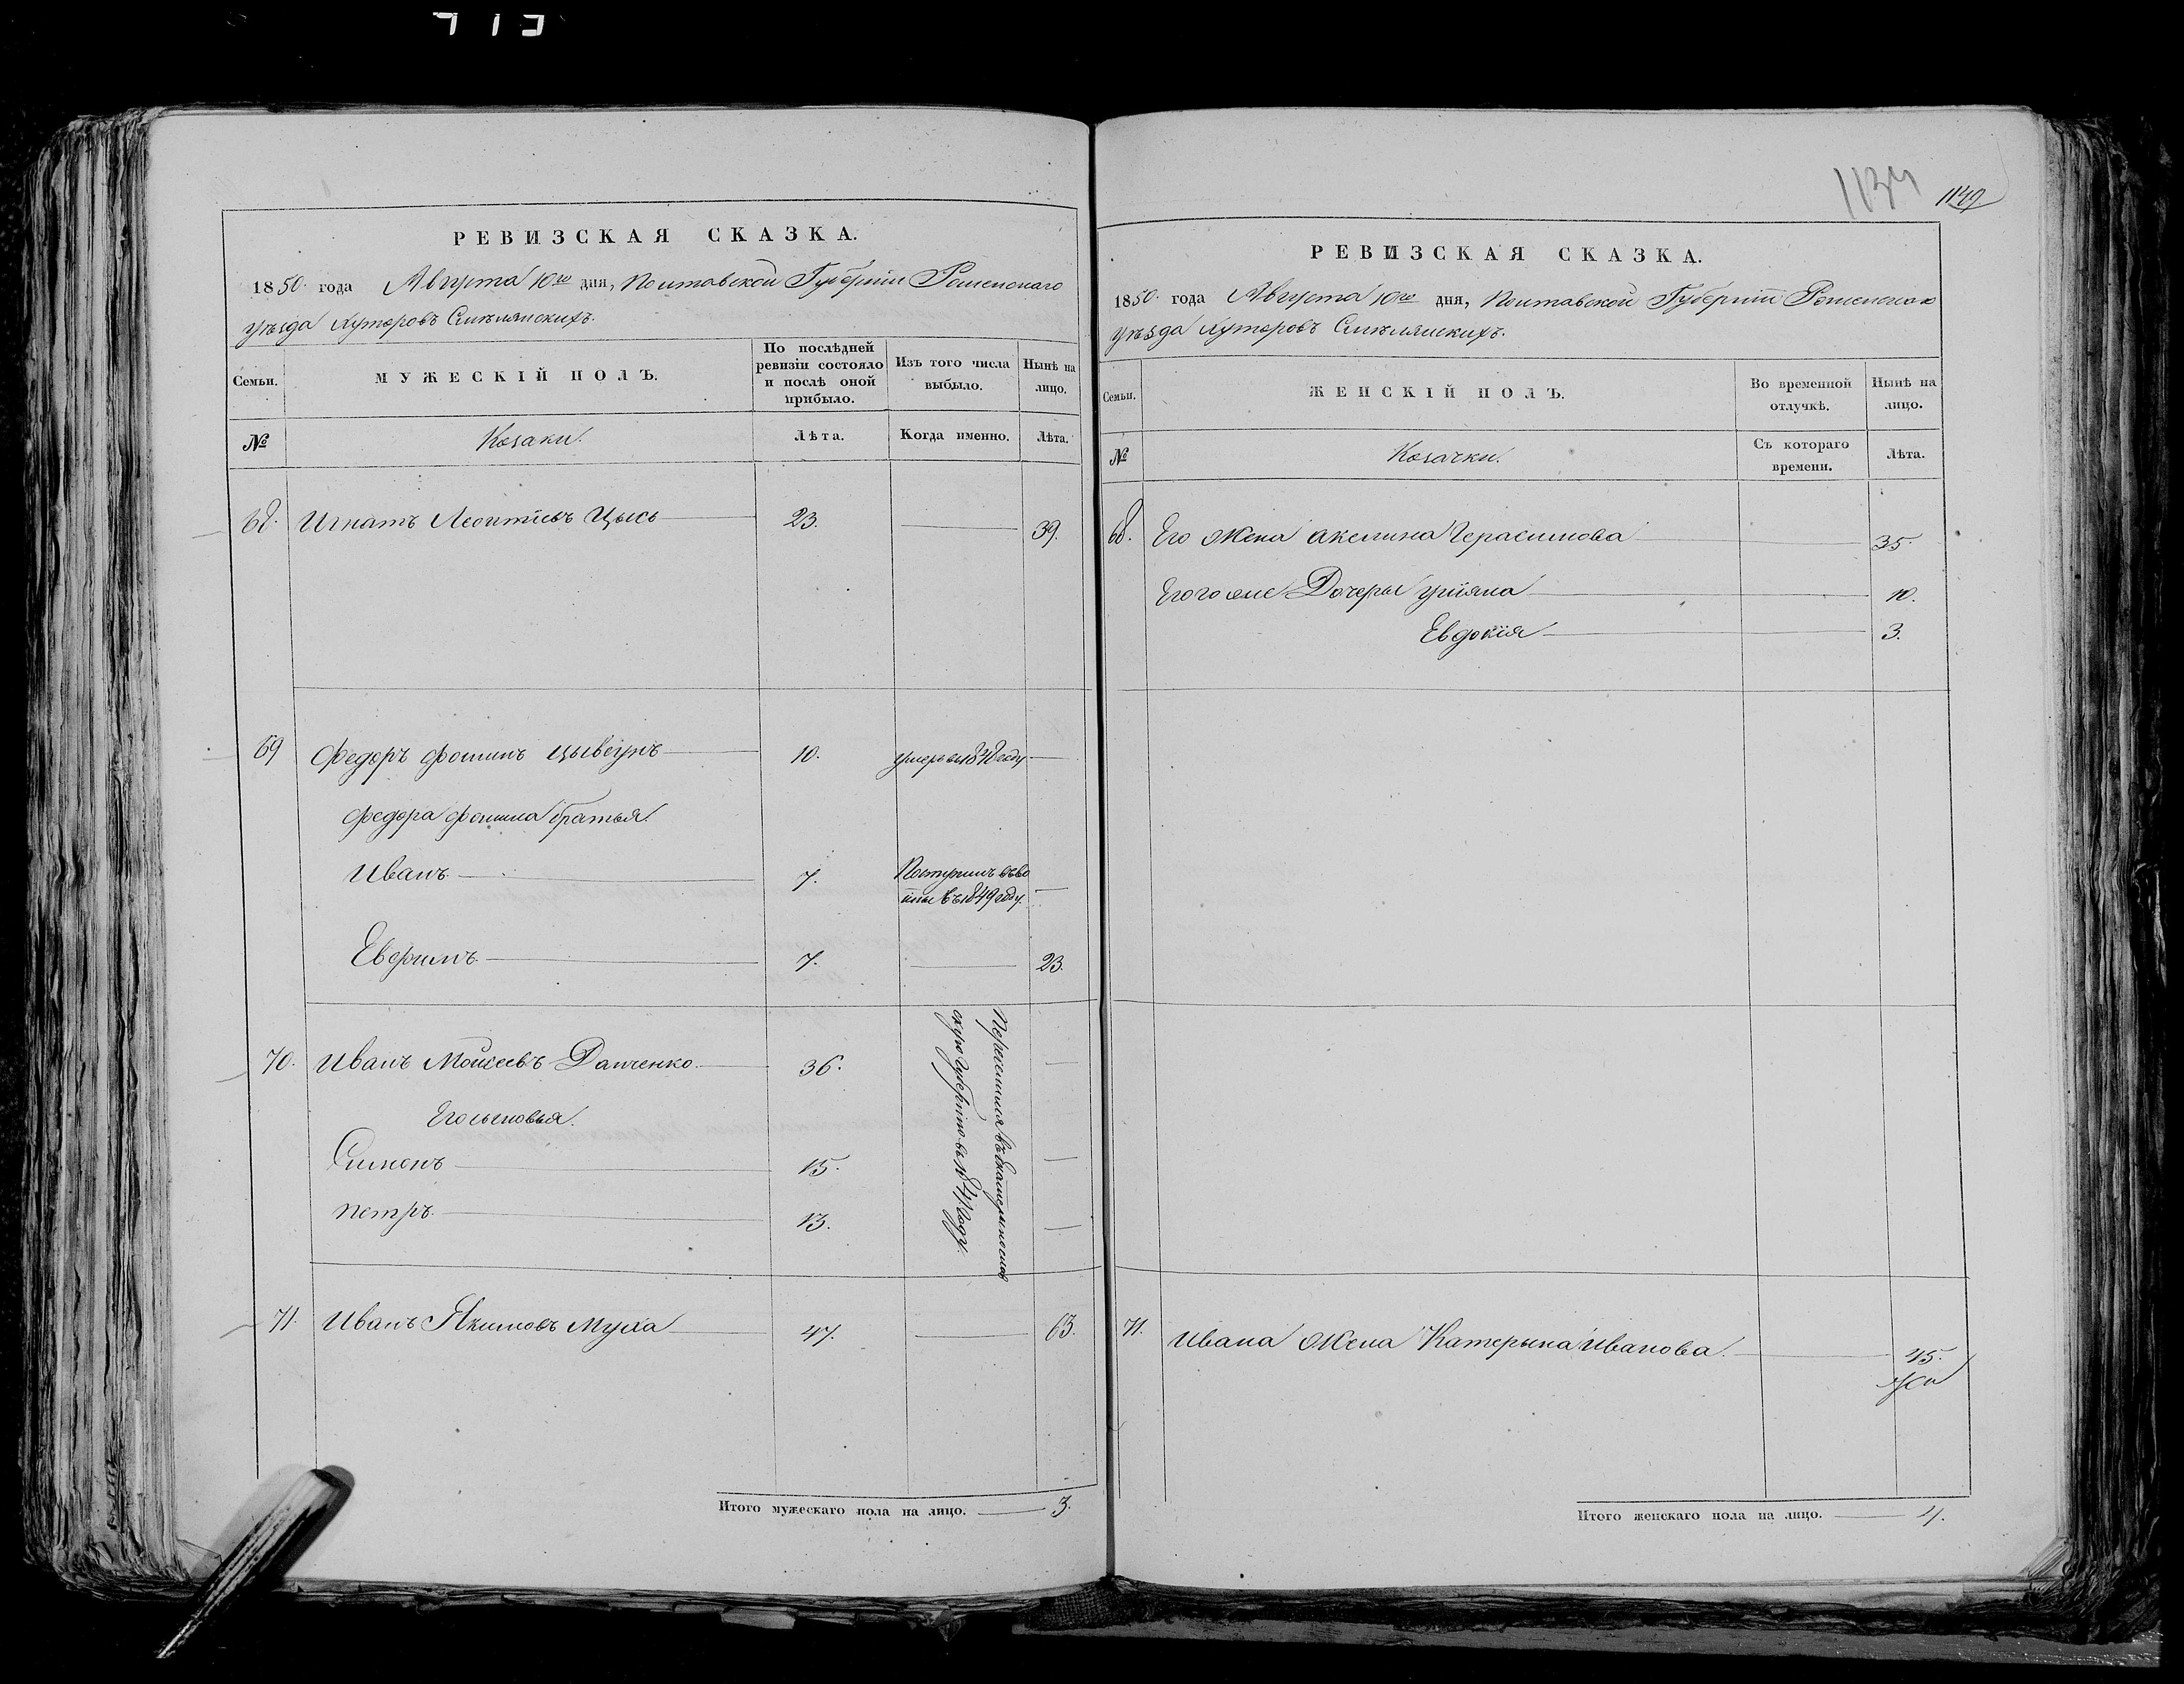 1134 1149
РЕВИЗСКАЯ СКАЗКА.
1850. года Августа 10го дня, Полтавской Губерніи Роменскаго
уѣзда Хуторовъ Смѣлянскихъ.
Семьи. МУЖЕСКІЙ ПОЛЪ. По послѣдней ревизіи состояло и послѣ оной прибыло. Изъ того числа выбыло. Нынѣ на лицо.
№ Козаки. Лѣта. Когда именно. Лѣта.
68. Игнатъ Леонтіевъ Цысь 23. 39.
69 Федоръ Фоминъ Цывгунъ 10. умеръ въ 1848 году
Федора Фомина братья.
Иванъ 7. Поступилъ въ во
іны въ 1849 году.
Евфимъ 7. 23.
70. Иванъ Моисеевъ Данченко 36. Переселился въ Екатеринослав
скую Губернію въ 1841 году.
Его сыновья.
Симонъ 15.
Петръ. 13.
71. Иванъ Якимовъ Муха 47. 63.
Итого мужескаго пола на лицо. 3.
РЕВИЗСКАЯ СКАЗКА.
1850. года Августа 10го дня, Полтавской Губерніи Роменскаго
уѣзда Хуторовъ Смѣлянскихъ.
Семьи. ЖЕНСКІЙ ПОЛЪ. Во временной отлучкѣ. Нынѣ на лицо.
№ Козачки. Съ котораго времени. Лѣта.
68. Его жена Акелина Герасимова 35.
Его же Дочеры Уліяна 10.
Евдокія 3.
71. Ивана жена Катерына Иванова. 45.
Итого женскаго пола на лицо. 4.